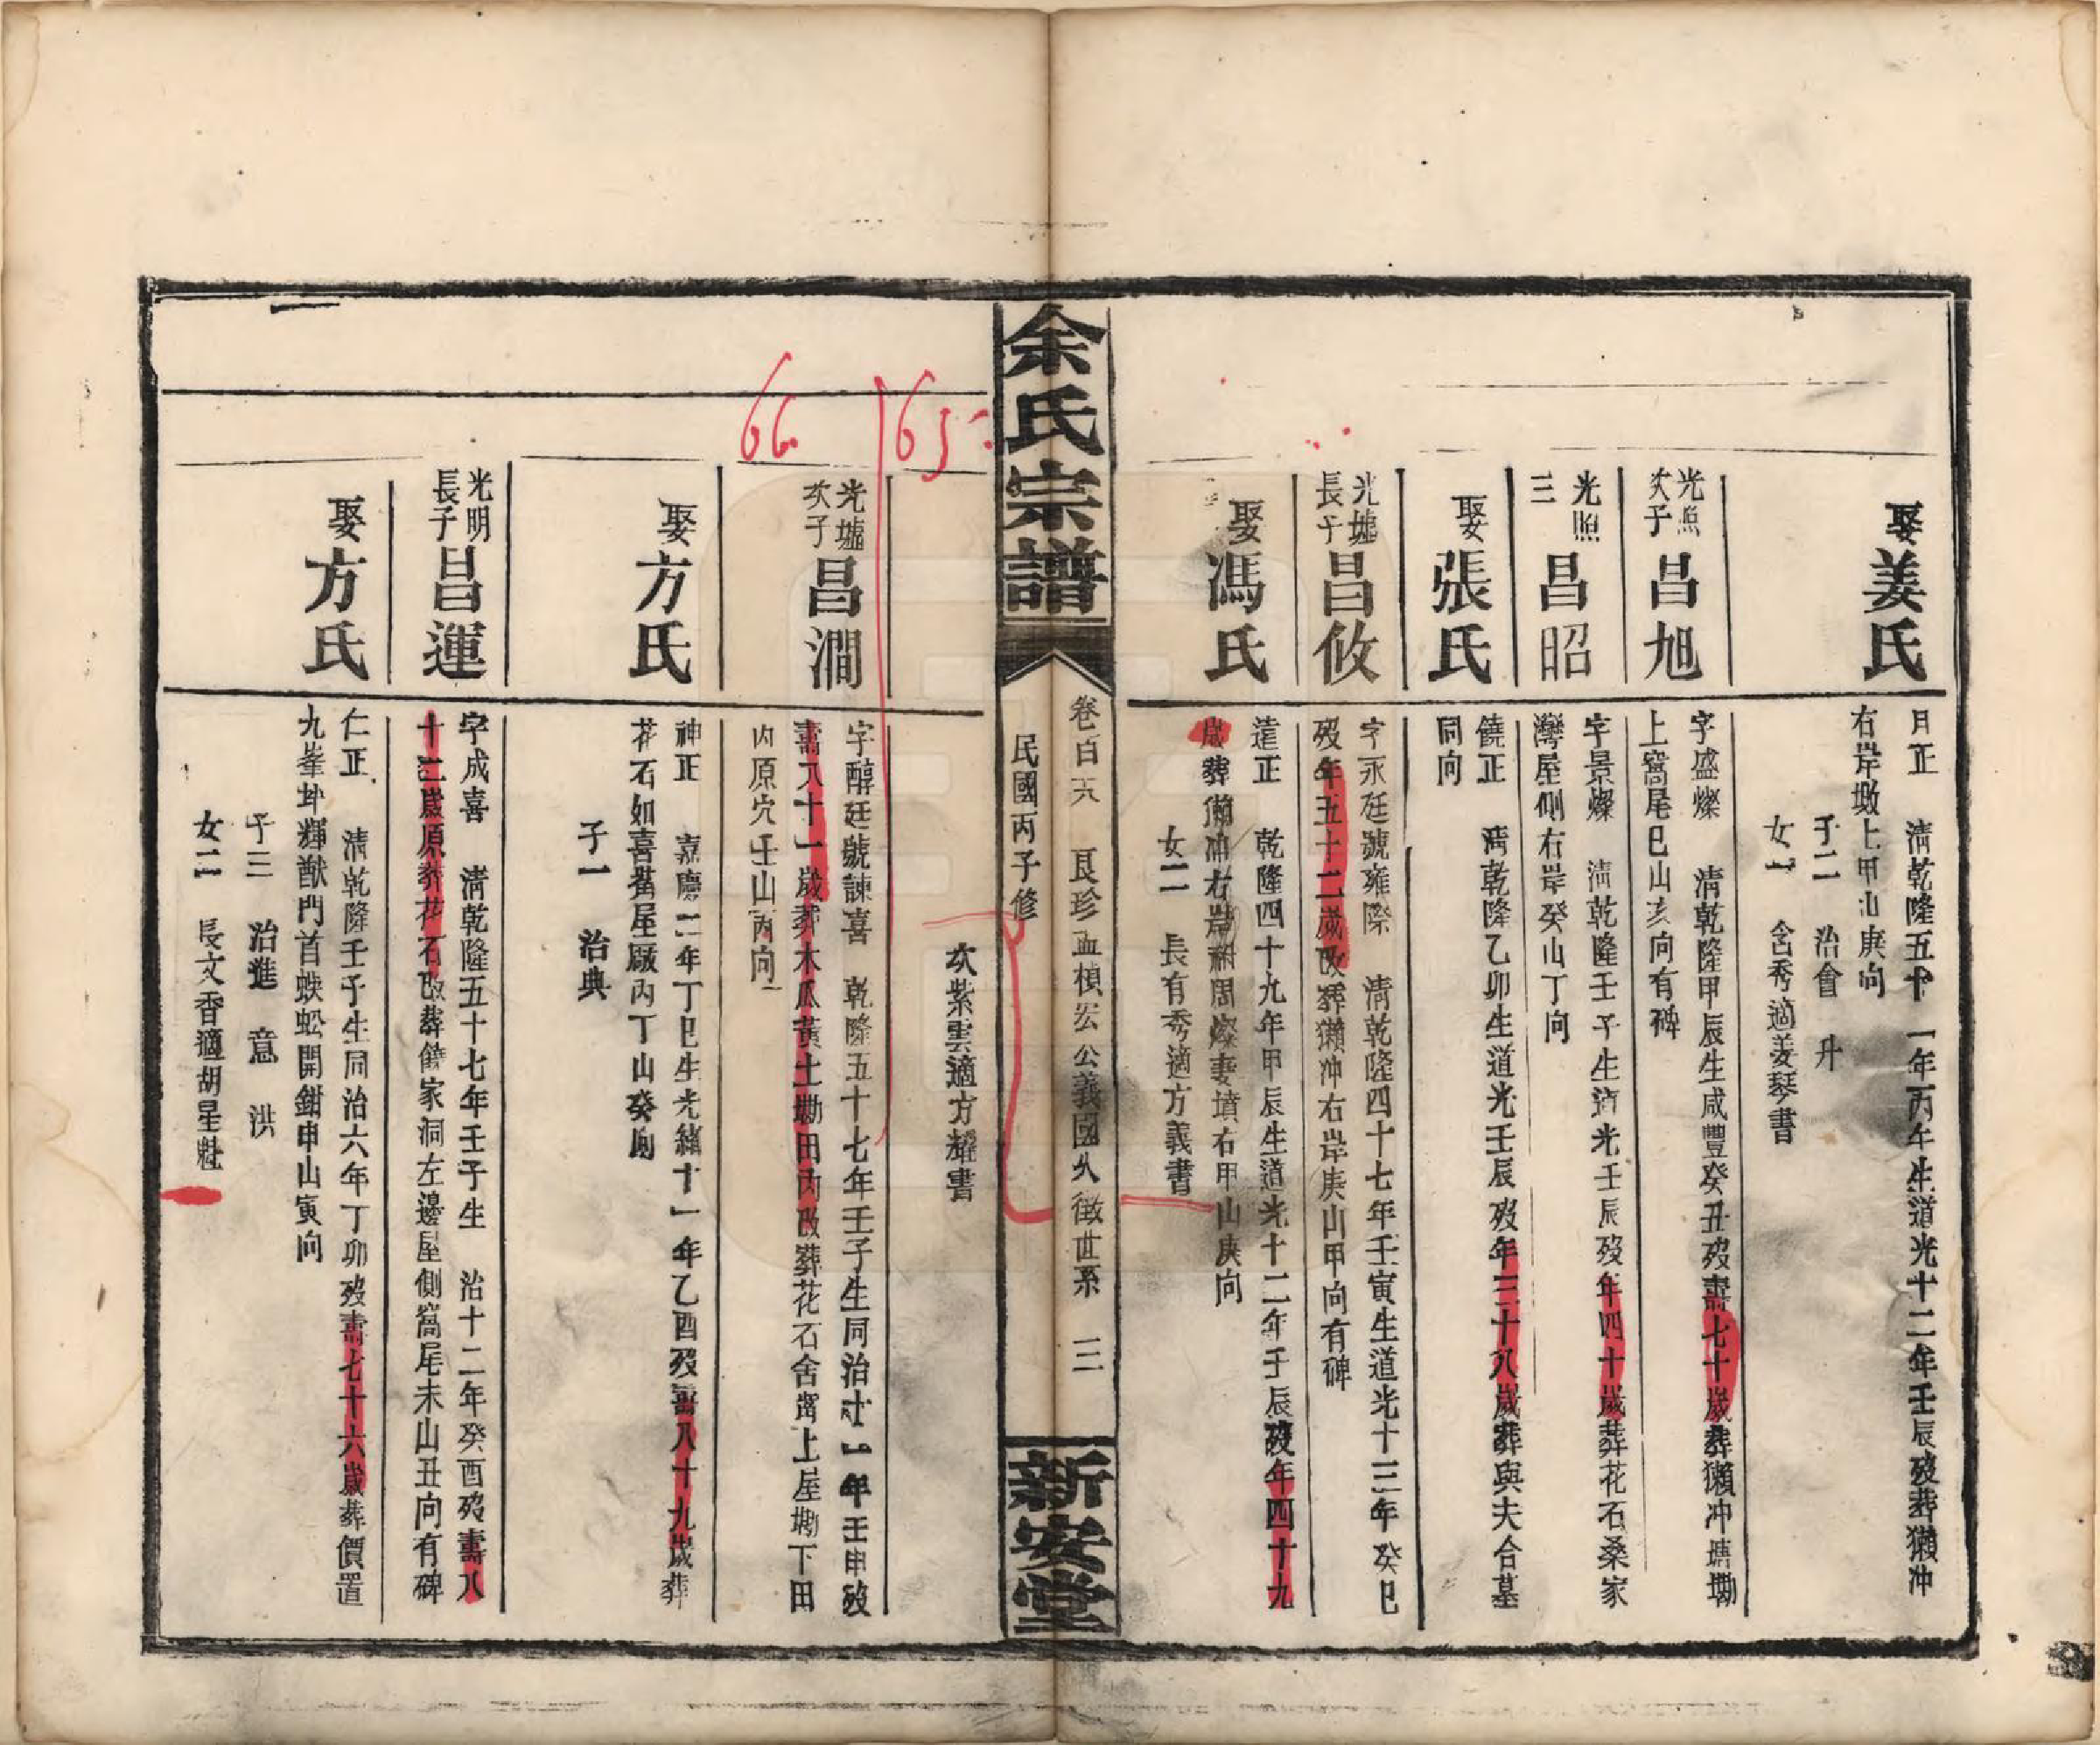 娶姜氏
月正 清乾隆五十一年丙午生道光十二年壬辰歿葬獺冲
右岸墩上甲山庚向
子二 治會 升
女一 含秀適姜琴書
光照次子昌旭
字盛燦 清乾隆甲辰生咸豐癸丑歿壽七十歲葬獺冲塘墈
上窩尾巳山亥向有碑
光照三昌昭
字景燦 清乾隆壬子生道光壬辰歿年四十歲葬花石桑家
灣屋側右岸癸山丁向
娶張氏
饒正 清乾隆乙卯生道光壬辰歿年三十八歲葬與夫合墓
同向
光墟長子昌攸
字永廷號雍際 清乾隆四十七年壬寅生道光十三年癸巳
歿年五十二歲改葬獺冲右岸庚山甲向有碑
娶馮氏
遠正 乾隆四十九年甲辰生道光十二年壬辰歿年四十九
歲葬獺冲右岸祖閏燦妻墳右甲山庚向
女二 長有秀適方義書
余氏宗譜
卷百六 艮珍孟楨宏公義國久徵世系 三
民國丙子修
新安堂
65
次紫雲適方耀書
66
光墟次子昌澗
字醇廷號諫喜 乾隆五十七年壬子生同治十一年壬申歿
壽八十一歲葬木瓜黃土墈田內改葬花石舍窩上屋墈下田
內原穴壬山丙向
娶方氏
神正 嘉慶二年丁巳生光緒十一年乙酉歿壽八十九歲葬
花石如喜舊屋廠丙丁山癸向
子一 治典
光明長子昌運
字成喜 清乾隆五十七年壬子生 治十二年癸酉歿壽八
十二歲原葬花石改葬饒家洞左邊屋側窩尾未山丑向有碑
娶方氏
仁正 清乾隆壬子生同治六年丁卯歿壽七十六歲葬價置
九峯坤輝猷門首蜈蚣開鉗申山寅向
子三 治進 意 洪
女二 長文香適胡星魁